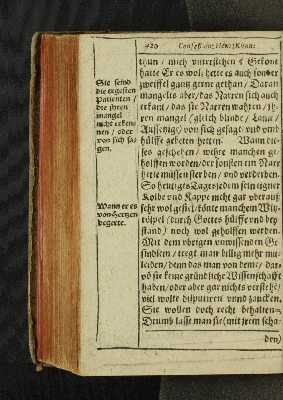 420 Confeßion: Henr: Khun:
thun / mich vnterstehen? Gekont
hatte Er es wol; hette es auch sonder
zweiffel gantz gerne gethan / Daran
mangelts aber / das Narren sich auch
erkant / das sie Narren wahren / jh-
ren mangel (gleich blinde / Lame /
Aussetzige) von sich gesagt vnd vmb
hülffe gebeten hetten. Wann die-
ses geschehen / wehre manchen ge-
holffen worden / der sonsten ein Narr
hette müssen sterben / vnd verderben.
So heutigs Tages jedem sein eigner
Kolbe vnd Kappe nicht gar vberauß
sehr wol gefiel / könte manchem Witz-
tölpel (durch Gottes hülffe vnd bey
stand) noch wol geholffen werden.
Mit dem vbrigen vnwissenden Ge-
sindlein / tregt man billig mehr mit-
leiden / denn das man von deme / dar-
vō sie keine gründliche Wissenschafft
haben / oder aber gar nichts verstehē /
viel wolte disputiren vnnd zancken.
Sie wollen doch recht behalten.
Drumb lasse man sie (mit jrem scha-
den)
Sie seind
die ergesten
Patienten /
die jhren
mangel
nicht erken-
nen / oder
von sich sa-
gen.
Wann er es
von hertzen
begerte.